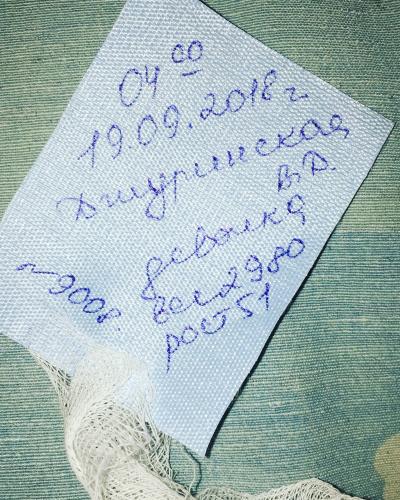 04 00
19.09.2018г.
Дишуринская
В.Д.
девочка
вес 2980
рост 51
н-9008.